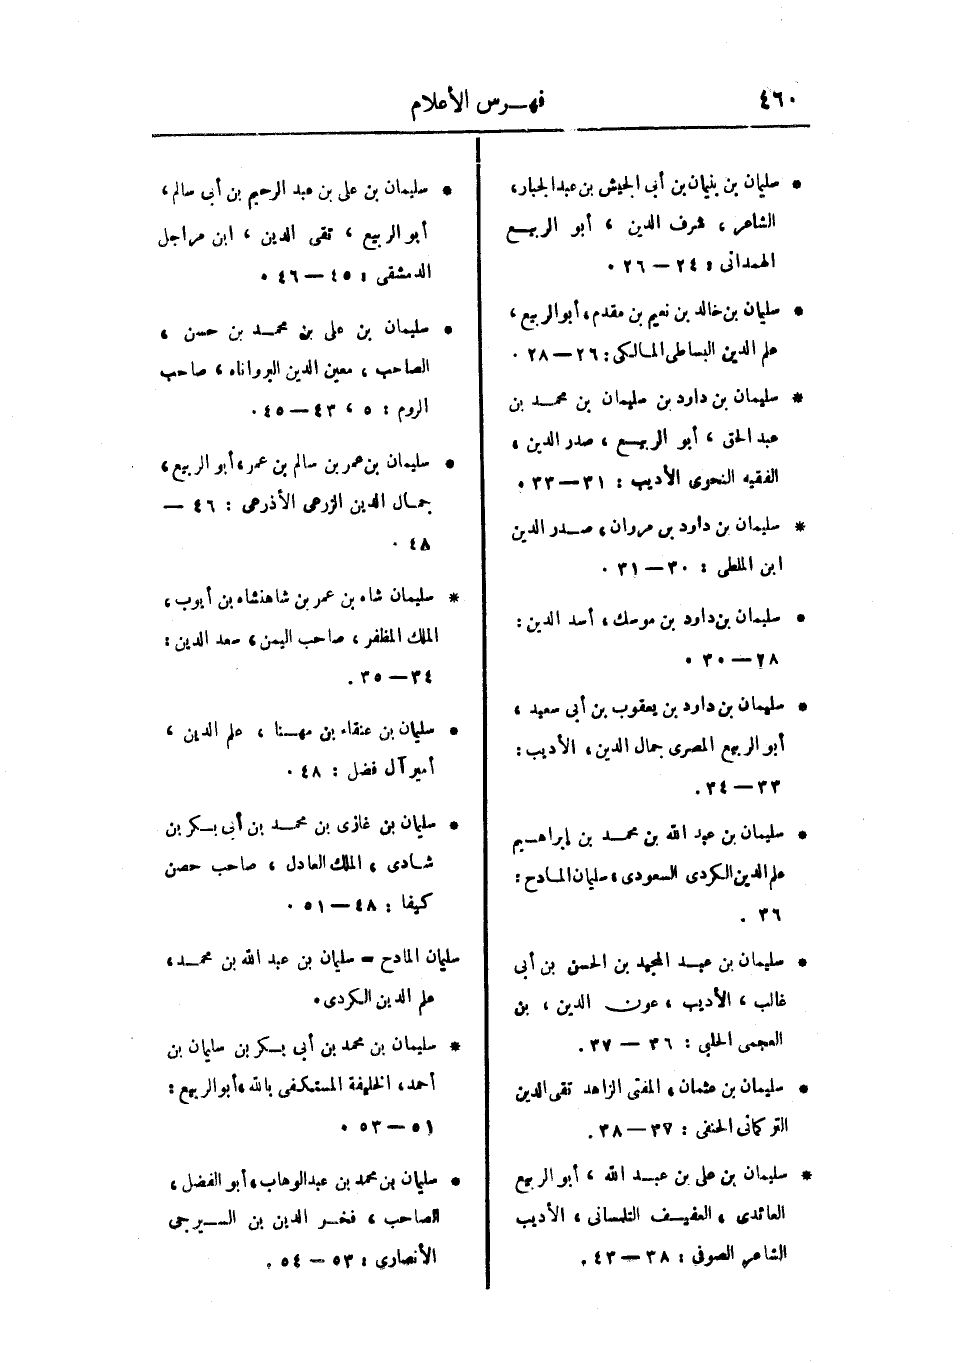 ٤٦٠
فهـرس الأعلام
* سليمان بن بنيمان بن أبى الجيش بن عبد الجبار،
الشاعر، شرف الدين ، أبو الربيع
الهمدانى : ٢٤ – ٢٦ .
* سليمان بن خالد بن نعيم بن مقدم، أبو الربيع ،
علم الدين البساطى المالكى : ٢٦ – ٢٨ .
* سليمان بن داود بن سليمان بن محمد بن
عبد الحق ، أبو الربيع ، صدر الدين ،
الفقيه النحوى الأديب : ٣١ – ٣٣ .
* سليمان بن داود بن مروان، صدر الدين
ابن الملطى : ٣٠ – ٣١ .
* سليمان بن داود بن موسك، أسد الدين :
٢٨ – ٣٠ .
* سليمان بن داود بن يعقوب بن أبى سعيد ،
أبو الربيع المصرى جمال الدين، الأديب :
٣٣ – ٣٤ .
* سليمان بن عبد الله بن محمد بن إبراهيم
علم الدين الكردى السعودى، سليمان المادح :
٣٦ .
* سليمان بن عبد المجيد بن الحسن بن أبى
غالب ، الأديب ، عون الدين ، بن
العجمى الحلبى : ٣٦ – ٣٧ .
* سليمان بن عثمان، المفتى الزاهد تقى الدين
التركمانى الحنفى : ٣٧ – ٣٨ .
* سليمان بن على بن عبد الله ، أبو الربيع
العائدى ، العفيف التلمسانى ، الأديب
الشاعر الصوفى : ٣٨ – ٤٣ .
* سليمان بن على بن عبد الرحيم بن أبى سالم،
أبو الربيع ، تقى الدين ، ابن مراجل
الدمشقى : ٤٥ – ٤٦ .
* سليمان بن على بن محمد بن حسن ،
الصاحب ، معين الدين البرواناه ، صاحب
الروم : ٥ ، ٤٣ – ٤٥ .
* سليمان بن عمر بن سالم بن عمر، أبو الربيع،
جمال الدين الزرعى الأذرعى : ٤٦ –
٤٨ .
* سليمان شاه بن عمر بن شاهنشاه بن أيوب،
الملك المظفر، صاحب اليمن، سعد الدين :
٣٤ – ٣٥ .
* سليمان بن عنقاء بن مهنا ، علم الدين ،
أمير آل فضل : ٤٨ .
* سليمان بن غازى بن محمد بن أبى بكر بن
شادى ، الملك العادل ، صاحب حصن
كيفا : ٤٨ – ٥١ .
سليمان المادح = سليمان بن عبد الله بن محمد،
علم الدين الكردى.
* سليمان بن محمد بن أبى بكر بن سليمان بن
أحمد، الخليفة المستكفى بالله، أبو الربيع :
٥١ – ٥٣ .
* سليمان بن محمد بن عبد الوهاب، أبو الفضل ،
الصاحب ، فخر الدين بن السيرجى
الأنصارى : ٥٣ – ٥٤ .